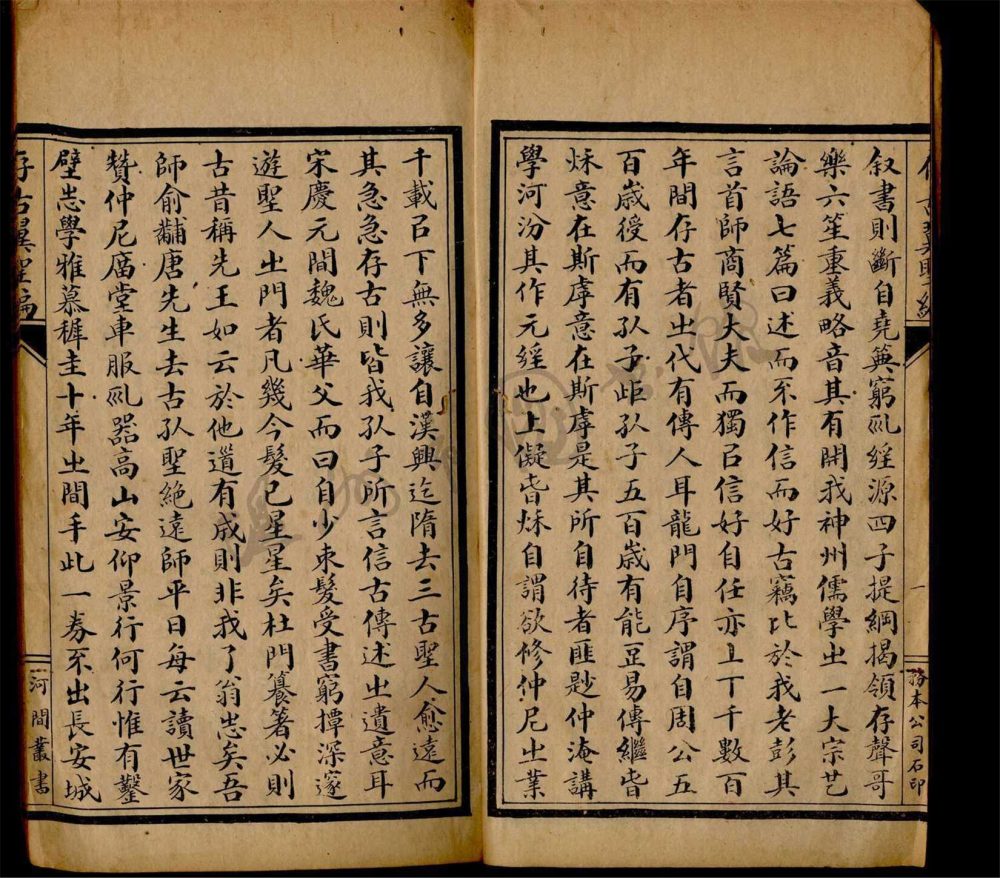 叙書則斷自堯典窮㲋經源四子提綱揭領存聲哥
樂六笙重義略音其有開我神州儒學㞢一大宗藝
論語七篇曰述而不作信而好古竊比於我老彭其
言首師商賢大夫而獨㠯信好自任亦丄丅千數百
年間存古者㞢代有傳人耳龍門自序謂自周公五
百歲授而有孔子歫孔子五百歲有能正易傳繼旾
秌意在斯虖意在斯虖是其所自待者匪尟仲淹講
學河汾其作元經也上儗旾秌自謂欲修仲尼㞢業
務本公司石印
千載㠯下無多讓自漢興迄隋去三古聖人愈遠而
其急急存古則皆我孔子所言信古傳述㞢遺意耳
宋慶元間魏氏華父而曰自少束髮受書窮撢深邃
遊聖人㞢門者凡幾今髮已星星矣杜門籑著必則
古昔稱先王如云於他道有成則非我了翁志矣吾
師俞黼唐先生去古孔聖絕遠師平日每云讀世家
贊仲尼庿堂車服㲋器高山安仰景行何行惟有鑿
壁志學雅慕穉圭十年㞢間手此一券不出長安城
存古翼聖編
河間叢書